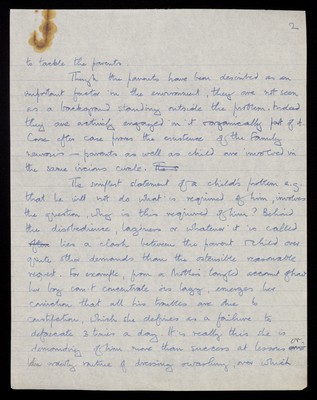 2
to tackle the parents.
Though the parents have been described as an
important factor in the environment, they are not seen
as a background standing outside the problem. Indeed
they are actively engaged in it & organically part of it.
Case after case proves the existence of the Family
neurosis — parents as well as child are involved in
the same vicious circle.
The simplest statement of a child's problem e.g.
that he will not do what is required of him, involves
the question, why is this required of him? Behind
the disobedience, laziness or whatever it is called
lies a clash between the parent & child over
quite other demands than the ostensible reasonable
request. For example, from a Mother's tangled account of how
her boy can't concentrate & is lazy, emerges her
conviction that all his troubles are due to
constipation, which she defines as a failure to
defaecate 3 times a day. It is really this she is
demanding of him more than success at lessons or
the nightly routine of dressing & washing, over which